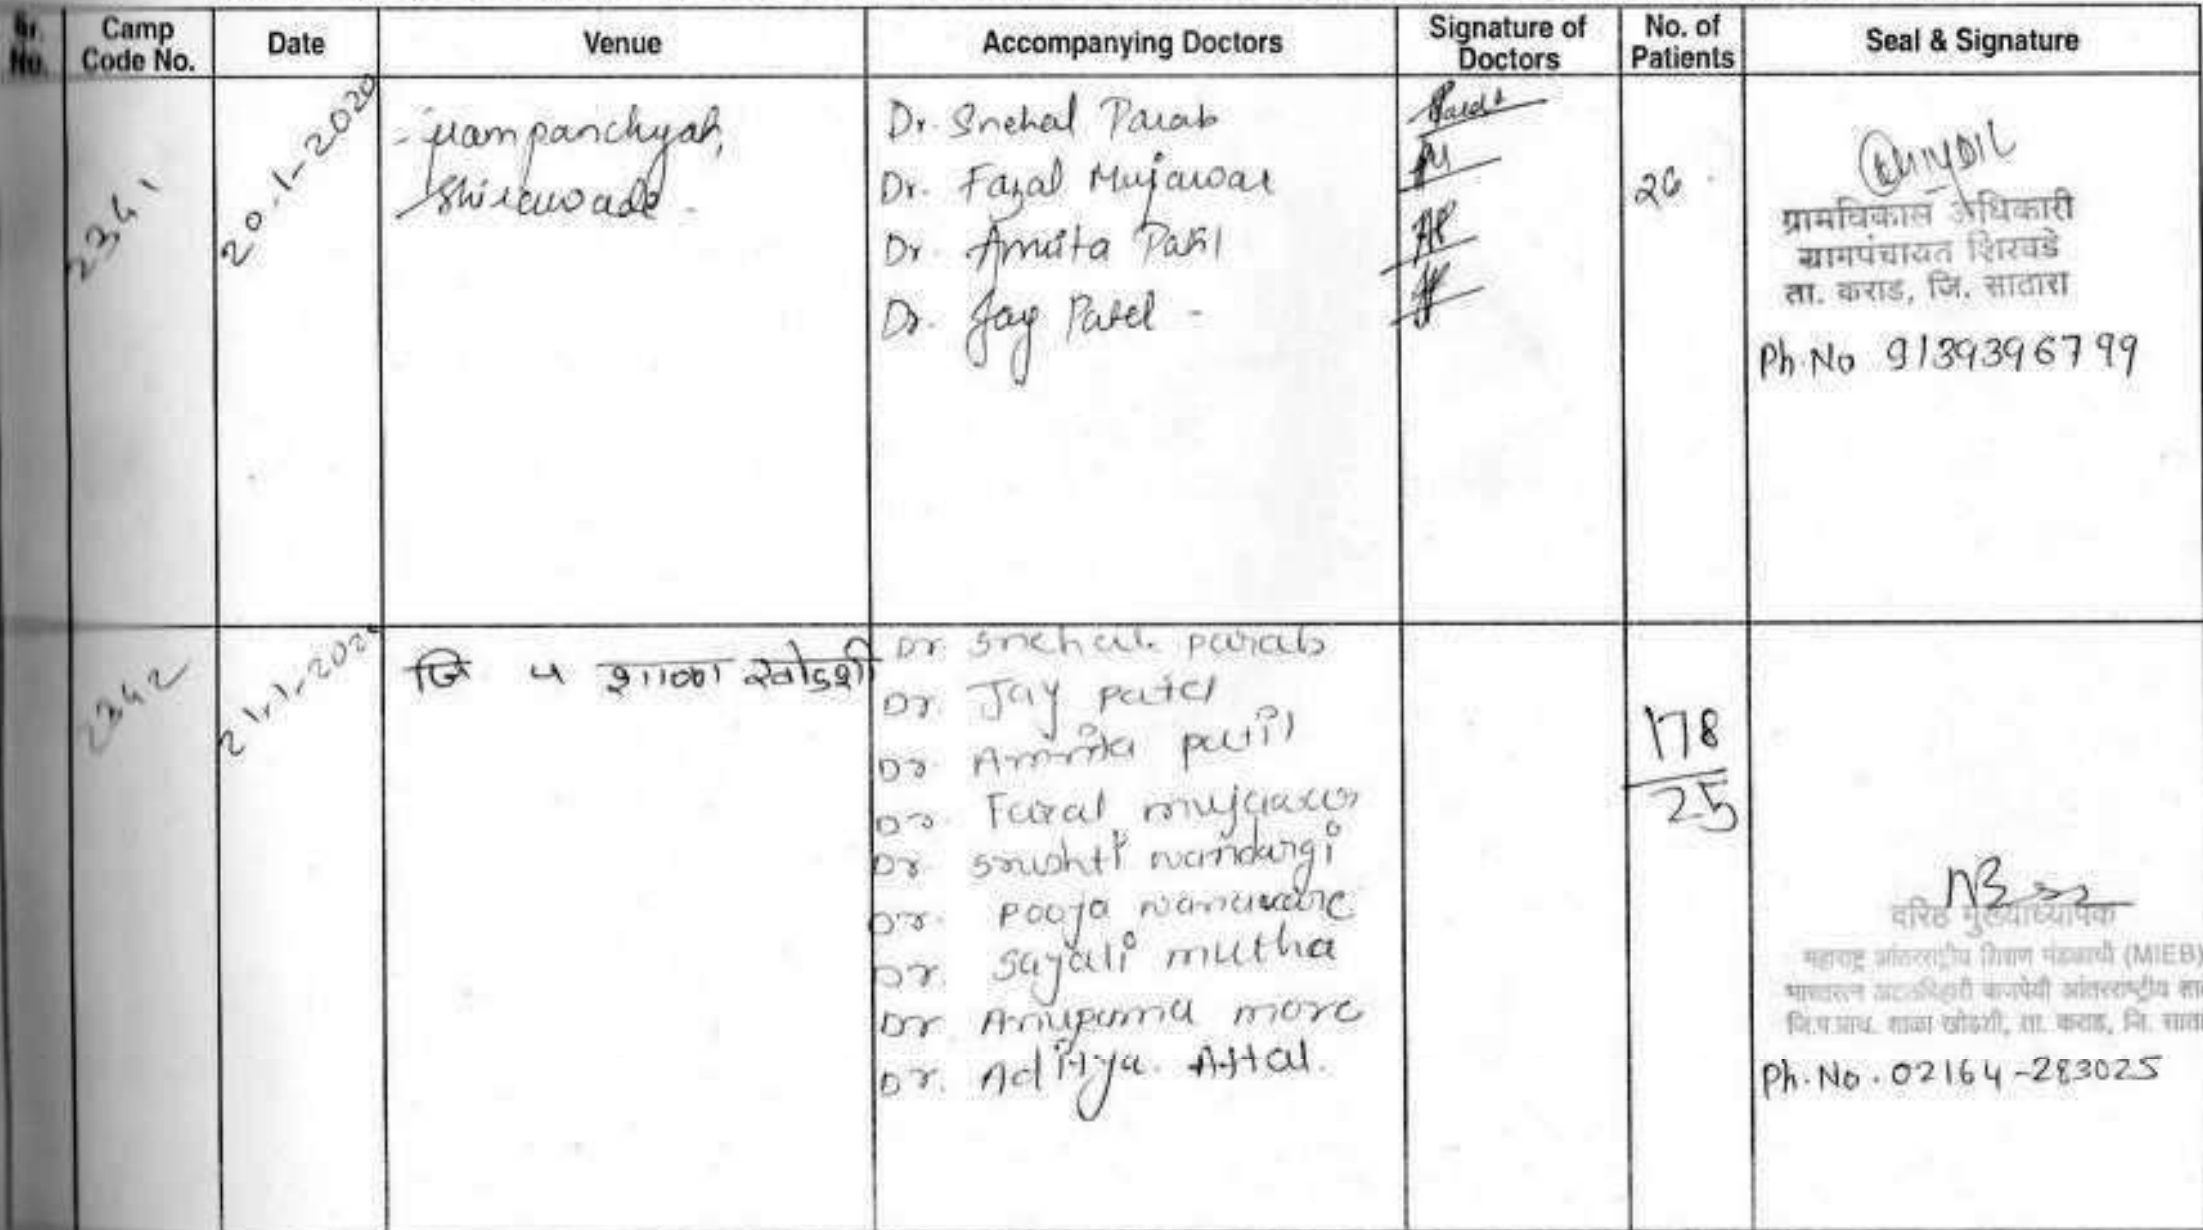 Sr. No.	Camp Code No.	Date	Venue	Accompanying Doctors	Signature of Doctors	No. of Patients	Seal & Signature
2341	20-1-2020
Dr. Snehal Parab
Dr. Fazal Mujawar
Dr. Amrita Patil
Dr. Jay Patel -
26
ग्रामविकास अधिकारी
ग्रामपंचायत शिरवडे
ता. कराड, जि. सातारा
Ph. No 9139396799
2342
जि प शाळा खोडशी
Dr. Snehal. parab
Dr. Jay patel
Dr. Amrita patil
Dr. Fazal mujawar
Dr. Srushti nandargi
Dr. Pooja nanaware
Dr. Sayali mutha
Dr. Anupama more
Dr. Aditya. Attal.
178
25
वरिष्ठ मुख्याध्यापक
महाराष्ट्र आंतरराष्ट्रीय शिक्षण मंडळाची (MIEB)
आंतरराष्ट्रीय
शाळा खोडशी, ता. कराड, जि.
Ph. No. 02164-283025